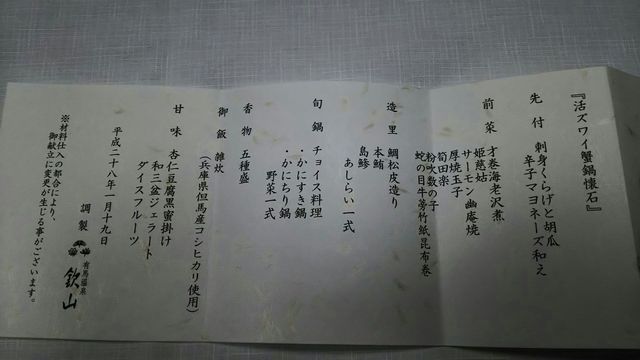 『活ズワイ蟹鍋懐石』
先付 刺身くらげと胡瓜
辛子マヨネーズ和え
前菜 才巻海老沢煮
姫慈姑
サーモン幽庵焼
厚焼玉子
筍田楽
粉吹数の子
蛇の目牛蒡竹紙昆布巻
造里 鯛松皮造り
本鮪
あしらい一式
島鯵
旬鍋 チョイス料理
・かにすき鍋
・かにちり鍋
野菜一式
香物 五種盛
御飯 雑炊
(兵庫県但馬産コシヒカリ使用)
甘味 杏仁豆腐黒蜜掛け
和三盆ジェラート
ダイスフルーツ
平成二十八年一月十九日
調製 有馬温泉 欽山
※材料仕入の都合により、
御献立に変更が生じる事がございます。